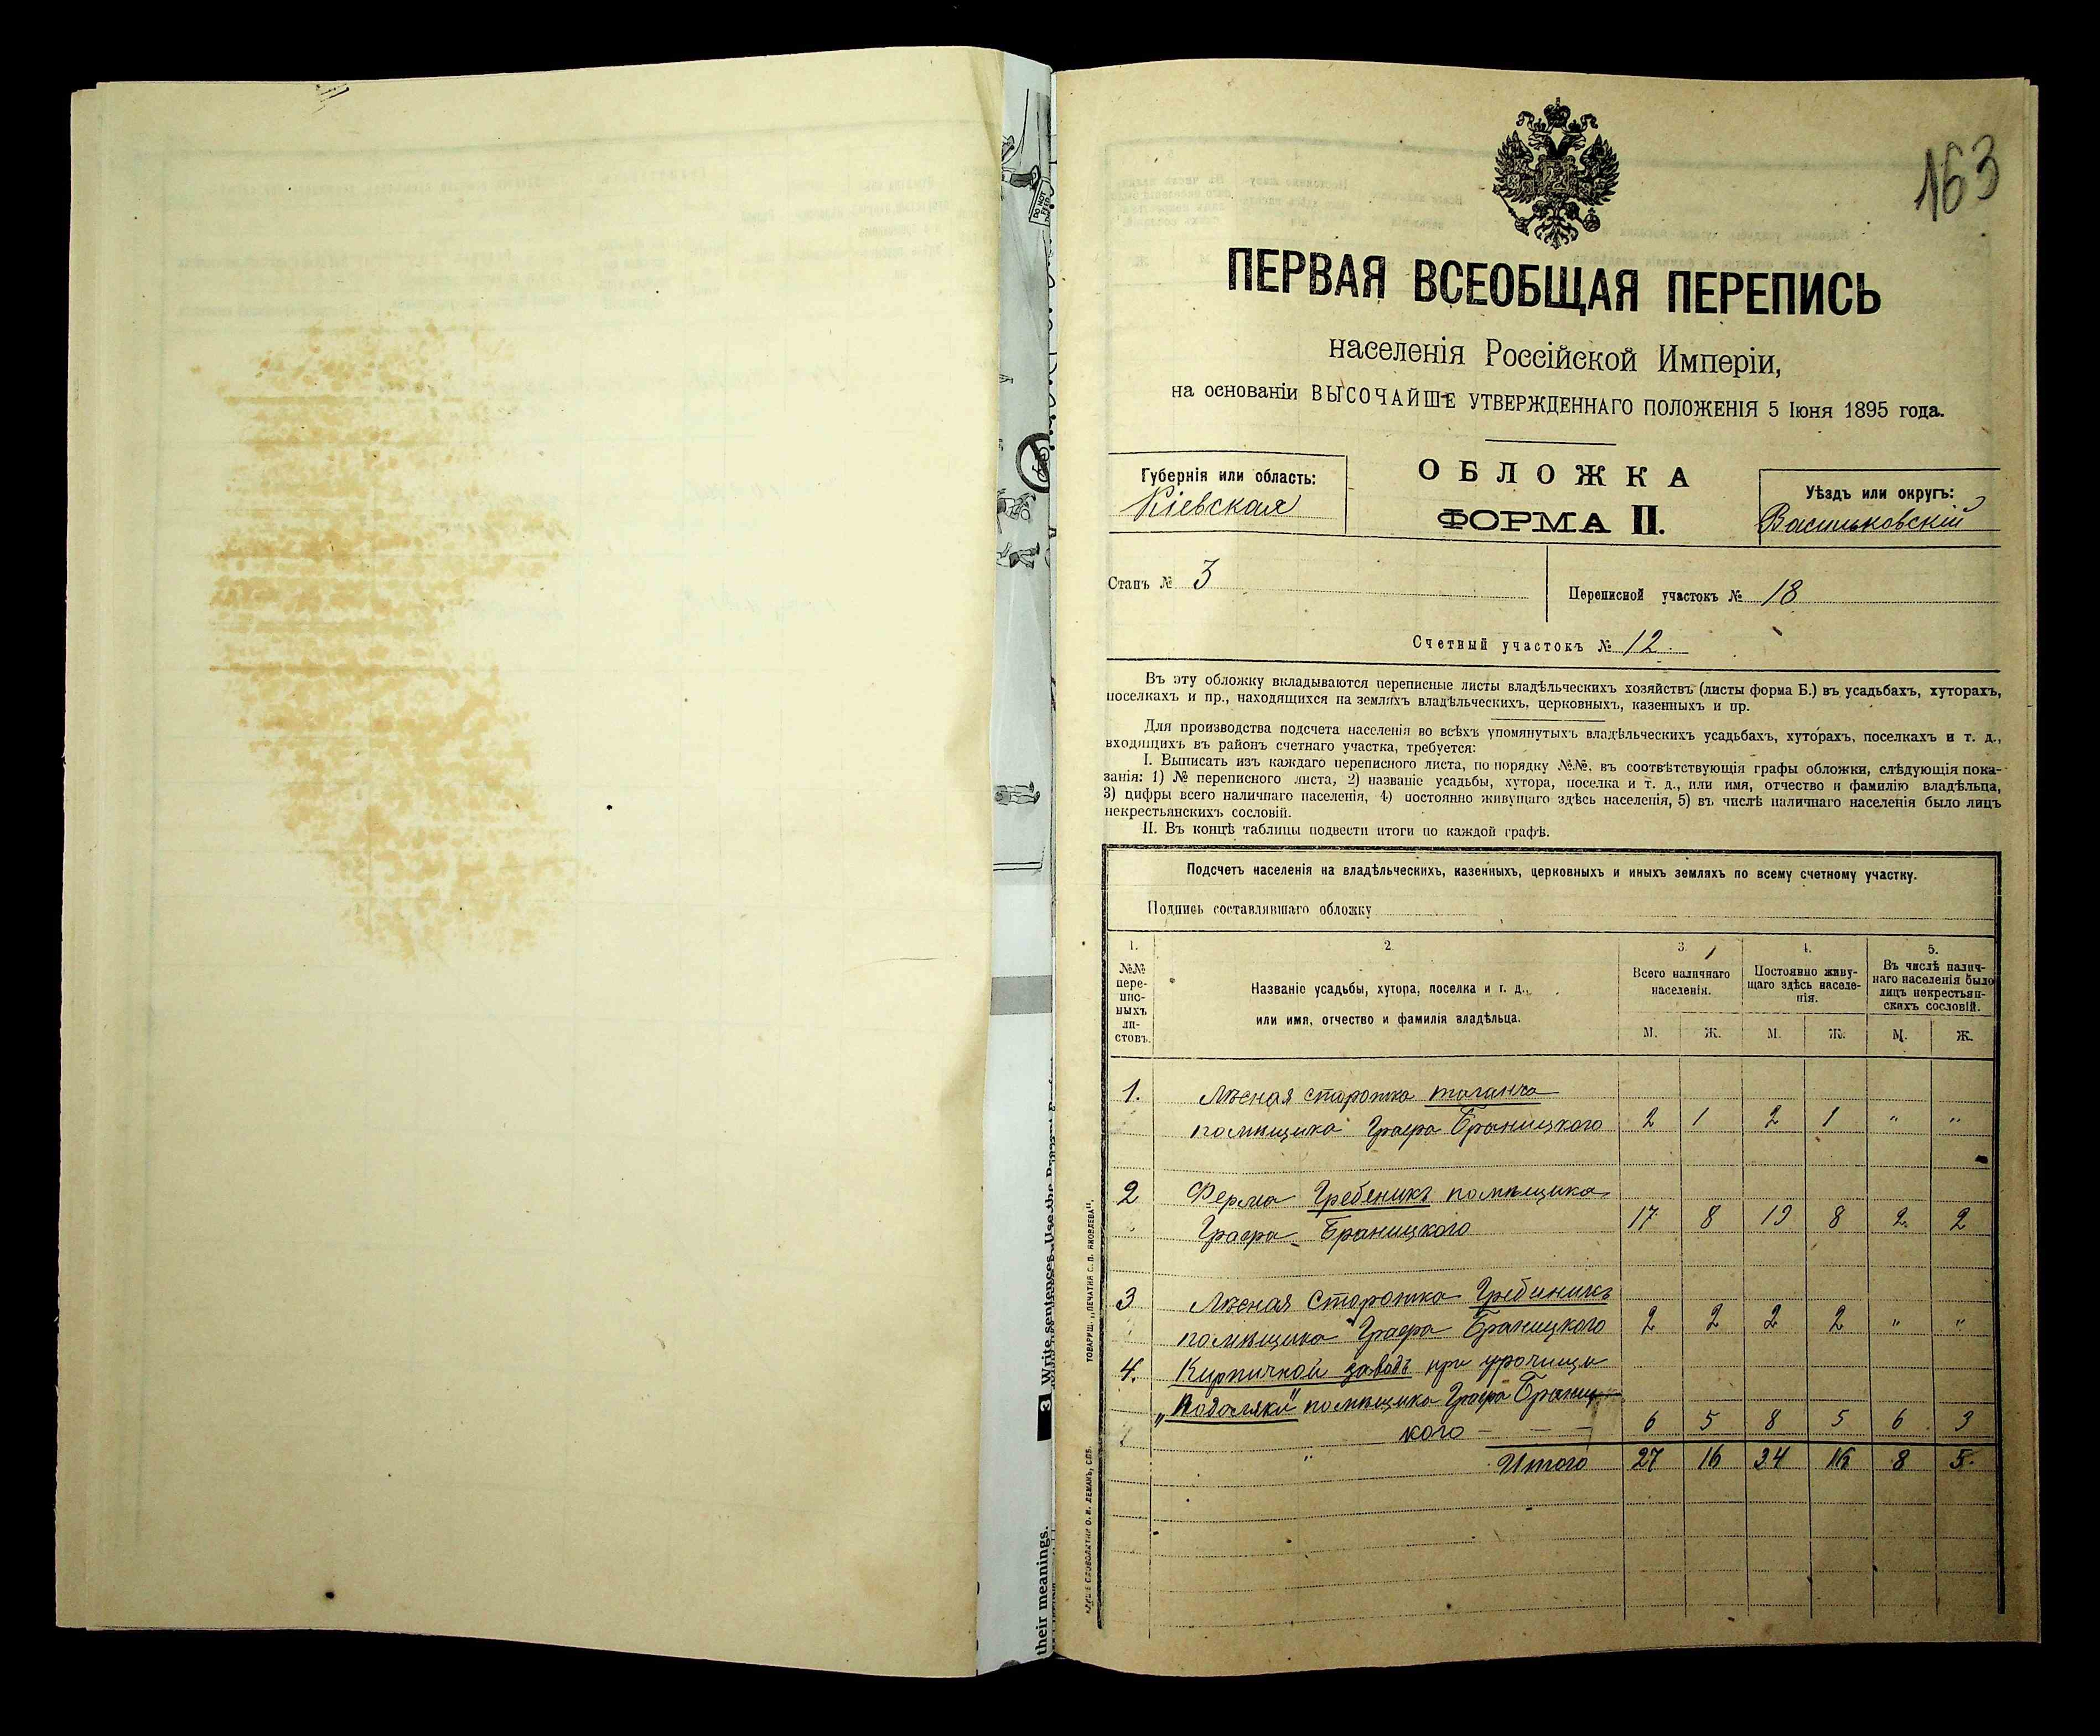 DO NOT FEED
3 Write sentences. Use the Present
their meanings.
163
ПЕРВАЯ ВСЕОБЩАЯ ПЕРЕПИСЬ
населенія Россійской Имперіи,
на основаніи ВЫСОЧАЙШЕ УТВЕРЖДЕННАГО ПОЛОЖЕНІЯ 5 Іюня 1895 года.
Губернія или область:
Кіевская
ОБЛОЖКА
ФОРМА II.
Уѣздъ или округъ:
Васильковскій
Станъ № 3
Переписной участокъ № 18
Счетный участокъ № 12.
Въ эту обложку вкладываются переписные листы владѣльческихъ хозяйствъ (листы форма Б.) въ усадьбахъ, хуторахъ,
поселкахъ и пр., находящихся на земляхъ владѣльческихъ, церковныхъ, казенныхъ и пр.
Для производства подсчета населенія во всѣхъ упомянутыхъ владѣльческихъ усадьбахъ, хуторахъ, поселкахъ и т. д.,
входящихъ въ районъ счетнаго участка, требуется:
I. Выписать изъ каждаго переписного листа, по порядку №№, въ соотвѣтствующія графы обложки, слѣдующія пока-
занія: 1) № переписного листа, 2) названіе усадьбы, хутора, поселка и т. д., или имя, отчество и фамилію владѣльца,
3) цифры всего наличнаго населенія, 4) постоянно живущаго здѣсь населенія, 5) въ числѣ наличнаго населенія было лицъ
некрестьянскихъ сословій.
II. Въ концѣ таблицы подвести итоги по каждой графѣ.
Подсчетъ населенія на владѣльческихъ, казенныхъ, церковныхъ и иныхъ земляхъ по всему счетному участку.
Подпись составлявшаго обложку
1. 2. 3. 4. 5.
№№ пере-пис-ныхъ ли-стовъ.
Названіе усадьбы, хутора, поселка и т. д.,
или имя, отчество и фамилія владѣльца.
Всего наличнаго населенія.
Постоянно живу-щаго здѣсь населе-нія.
Въ числѣ налич-наго населенія было лицъ некрестьян-скихъ сословій.
М. Ж. М. Ж. М. Ж.
1. Лѣсная сторожка таганча
помѣщика Графа Браницкого 2 1 2 1 " "
2 Ферма Гребеникъ помѣщика
Графа Браницкого 17 8 19 8 2 2
3 Лѣсная Сторожка Гребиникъ
помѣщика Графа Браницкого 2 2 2 2 " "
4. Кирпичной заводъ при урочищи
помѣщика Графа Браниц
кого - - - 6 5 8 5 6 3
" Итого 27 16 34 16 8 5
ТОВАРИЩ. „ПЕЧАТНЯ С. П. ЯКОВЛЕВА“.
СЛОВОЛИТНИ О. И. ЛЕМАНЪ, СПБ.